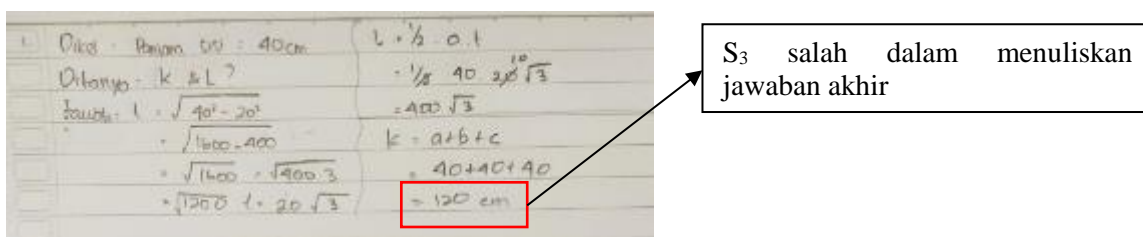 1. Diket : Panjang sisi : 40 cm
Ditanya : k & L ?
Jawab : t = √40² - 20²
= √1600 - 400
= √1600 = √400.3
= √1200 t = 20 √3
L = 1/2 . a . t
= 1/2 40 20 10 √3
= 400 √3
k = a+b+c
= 40+40+40
= 120 cm
S₃ salah dalam menuliskan
jawaban akhir